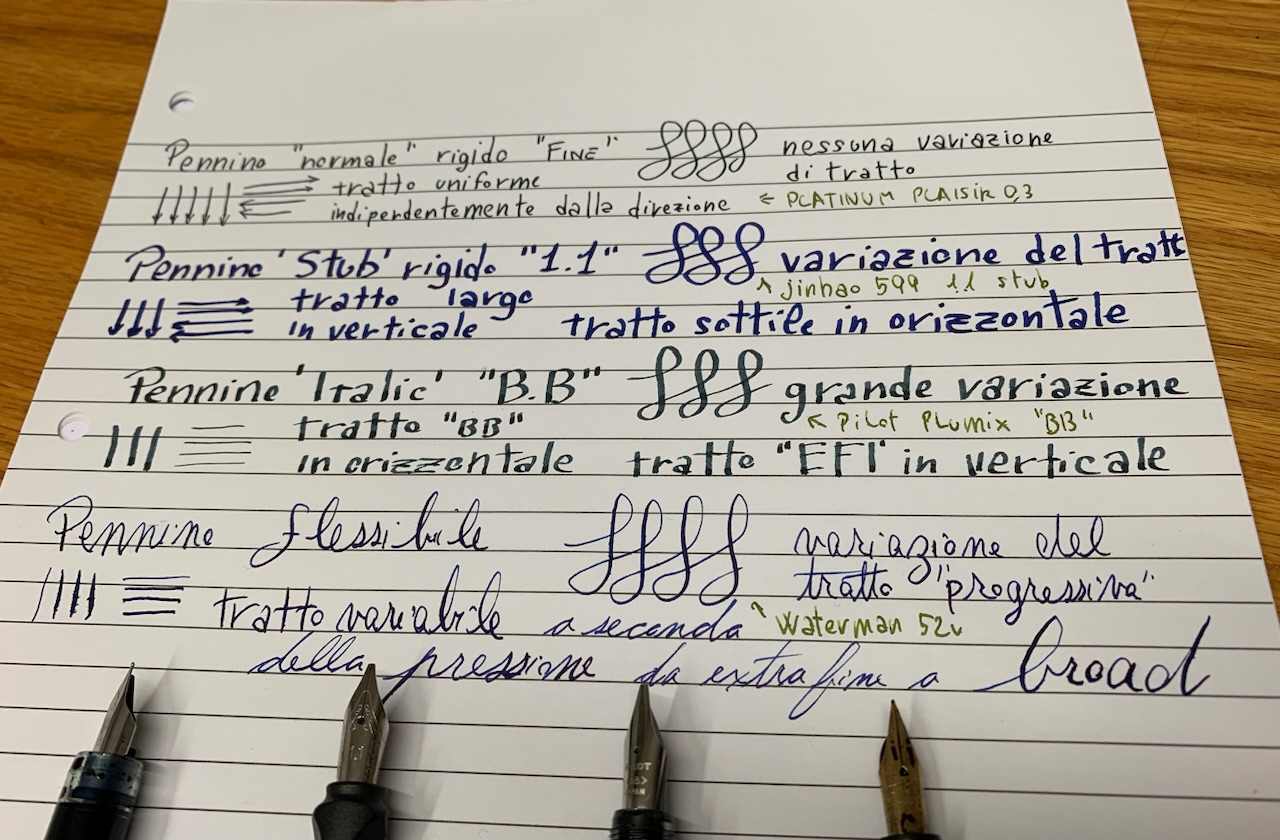 Pennino "normale" rigido "FINE" nessuna variazione
di tratto
tratto uniforme
indipendentemente dalla direzione ← PLATINUM PLAISIR 0,3
Pennino 'Stub' rigido "1.1" variazione del tratt
^ jinhao 599 1.1 stub
tratto largo
in verticale tratto sottile in orizzontale
Pennino 'Italic' "B.B" grande variazione
tratto "BB" ↖ Pilot Plumix "BB"
in orizzontale tratto "EF" in verticale
Pennino flessibile variazione del
tratto "progressiva"
tratto variabile a seconda ^ Waterman 52v
della pressione da extrafine a broad
PILOT